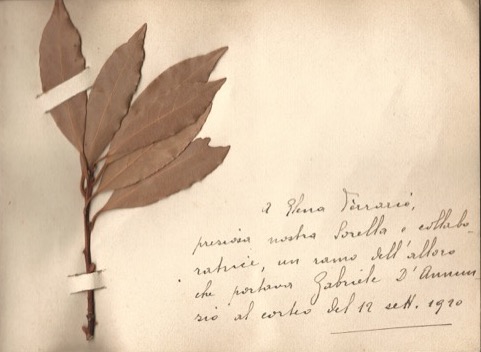 A Elena Ferrario,
preziosa nostra Sorella e collabo-
ratrice, un ramo dell'alloro
che portava Gabriele D'Annun
zio al corteo del 12 sett. 1920